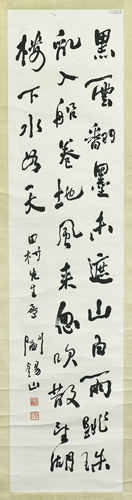 黑雲翻墨未遮山白雨跳珠
亂入船卷地風來忽吹散望湖
樓下水如天
田村先生属
閻錫山